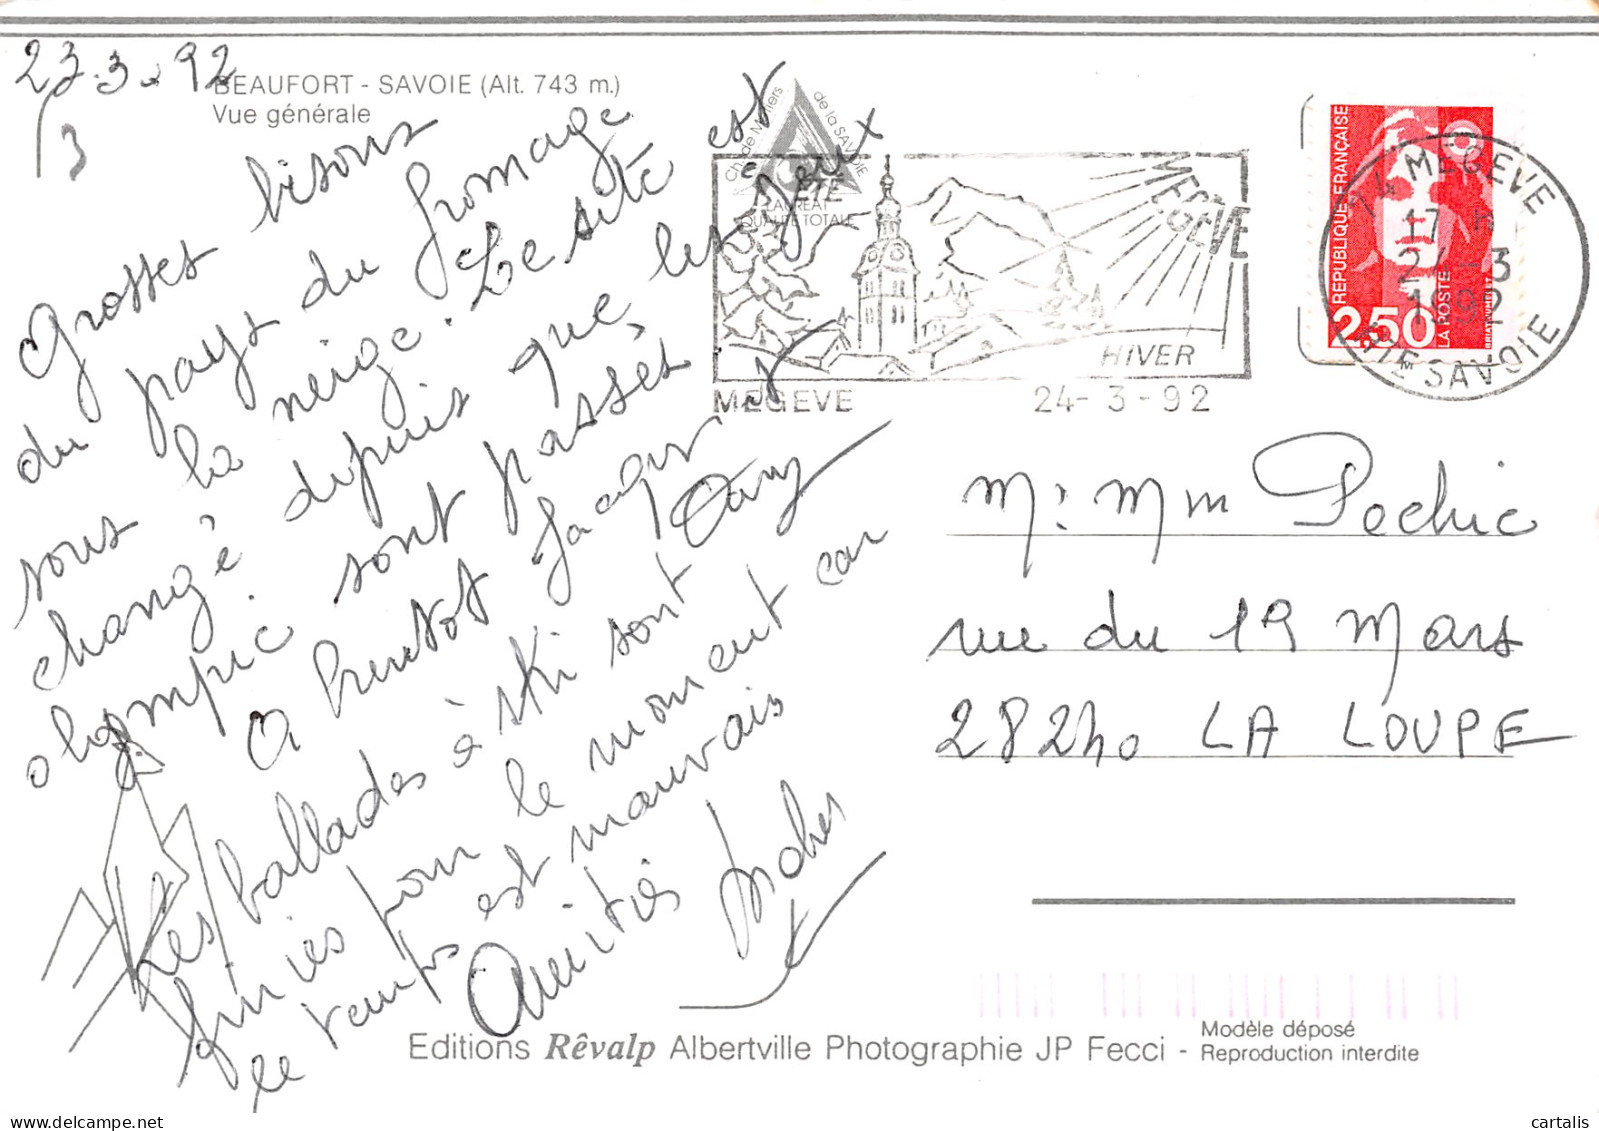 23.3.92
BEAUFORT - SAVOIE (Alt. 743 m.)
Vue générale
Grosses bisous
du pays du fromage
sous la neige. Le site est
changé depuis que les jeux
olympic sont passés
A bientot Jacques
Dany
Les ballades à ski sont
finies pour le moment car
le temps est mauvais
Amitiés
Ch de Métiers de la SAVOIE
LAURÉAT
QUALITÉ TOTALE
ETE
MEGÈVE
HIVER
MEGEVE 24-3-92
REPUBLIQUE FRANÇAISE
2,50
LA POSTE
74 MEGEVE
17 H
24-3
1992
HTE SAVOIE
M. Mm Pochic
rue du 19 Mars
28240 LA LOUPE
Editions Rêvalp Albertville Photographie JP Fecci - Modèle déposé
Reproduction interdite
cartalis